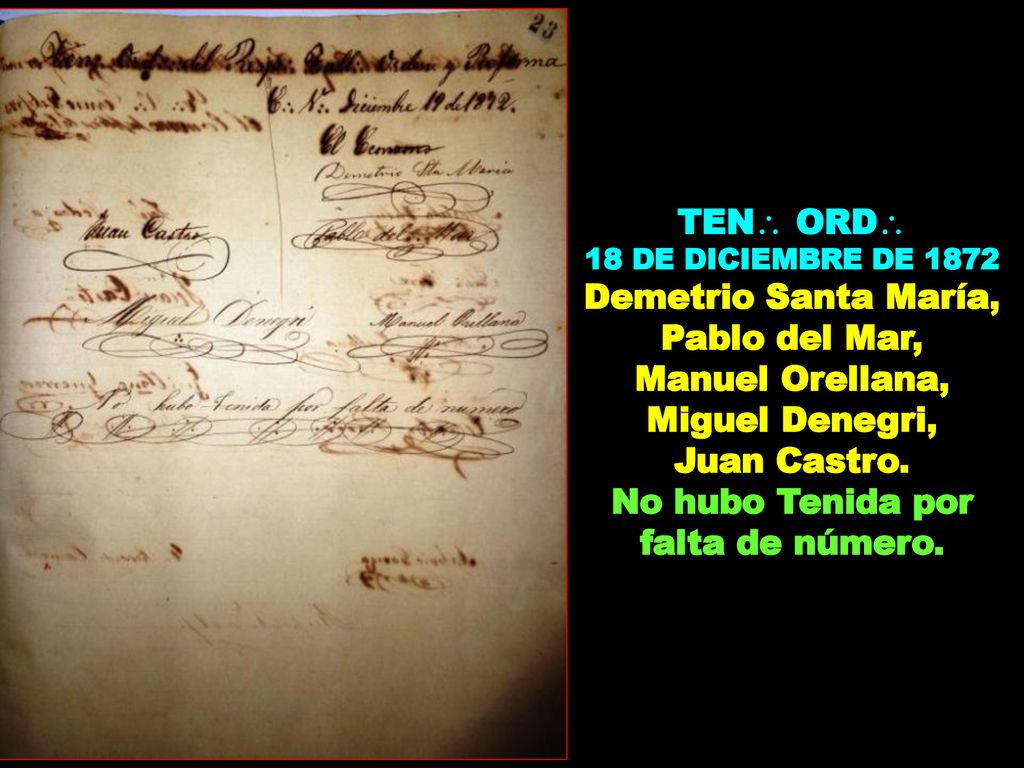 23
Ten∴ Ord∴ del Resp∴ Tall∴ Orden y Reforma
E∴ V∴ Diciembre 19 de 1872.
El Economo
Demetrio Sta Maria
Juan Castro
Pablo del Mar
Miguel Denegri
Manuel Orellana
No hubo Tenida por falta de número
TEN∴ ORD∴
18 DE DICIEMBRE DE 1872
Demetrio Santa María,
Pablo del Mar,
Manuel Orellana,
Miguel Denegri,
Juan Castro.
No hubo Tenida por
falta de número.